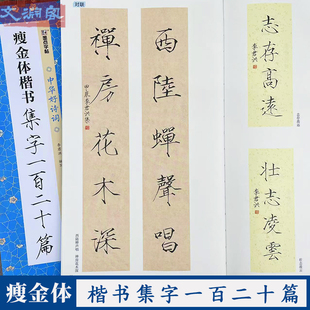 文渊阁
墨点字帖
中华好诗词
瘦金体楷书
集字一百二十篇
对联
西陸蟬聲唱
禪房花木深
志存高遠
李君洪
壯志凌雲
李君洪
瘦金体
楷书集字一百二十篇